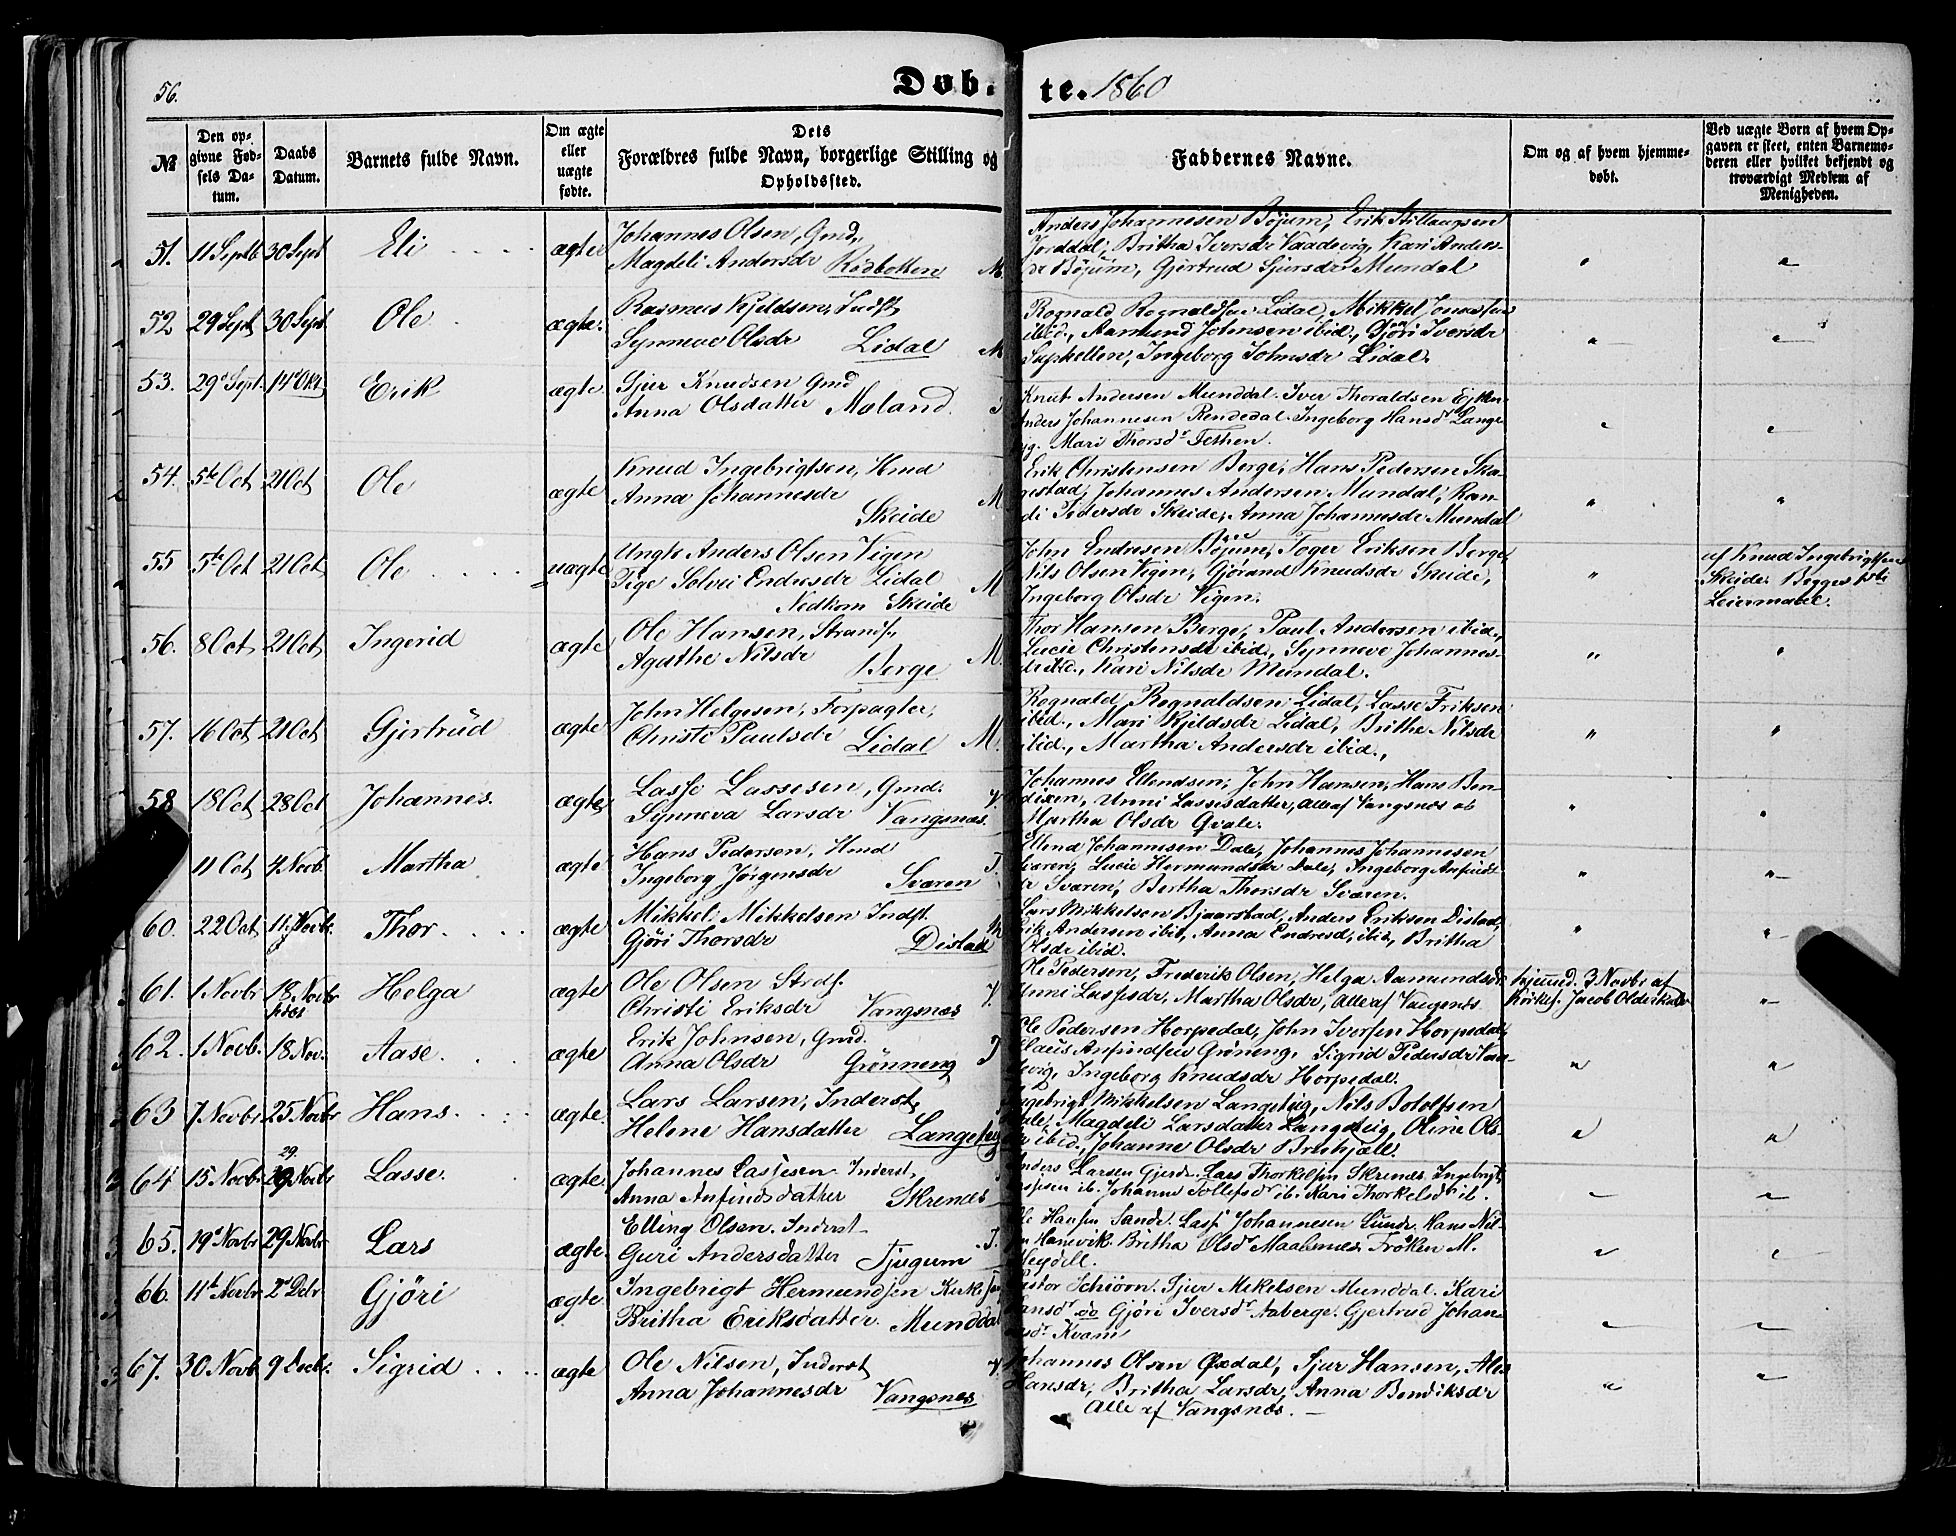 56.
Døb-
te. 1860
№
Den op-
givne Fød-
sels Da-
tum.
Daabs
Datum.
Barnets fulde Navn.
Om ægte
eller
uægte
fødte.
Dets
Forældres fulde Navn, borgerlige Stilling og
Opholdssted.
Faddernes Navne.
Om og af hvem hjemme-
døbt.
Ved uægte Børn af hvem Op-
gaven er skeet, enten Barnemo-
deren eller hvilket bekjendt og
troværdigt Medlem af
Menigheden.
51. 11 Septb 30 Sept Eli ægte
Johannes Olsen, Gmd.,
Magdeli Andersdr Rödbotten M
Anders Johannesen Böjum, Erik
Jorddal, Britha Iversdr Vaadevig, Kari Anders-
dr Böjum, Gjertrud Sjursdr Mundal
52 29 Sept 30 Sept Ole ægte.
Rasmus Kjeldsen, Indst
Synneve Olsdr Lidal M
Rognald Rognaldsen Lidal, Mikkel Jonassen
ibid., Aamund Johnsen ibid., Gjöri Iversdr
Suphellen, Ingeborg Johnsdr Lidal.
53. 29d Sept. 14d Okt Erik ægte.
Sjur Knudsen Gmd
Anna Olsdatter Moland.
Knut Andersen Munddal. Iver Thoraldsen
Anders Johannesen Rendedal. Ingeborg Hansdr Lange
ig. Mari Thorsdr Fethen.
54. 5te Oct 21 Oct Ole ægte
Knud Ingebrigtsen, Hmd
Anna Johannesdr
Skeide M
Erik Christensen Berge, Hans Pedersen Ska-
gestad, Johannes Andersen Mundal, Ran-
di Pedersdr Skeide, Anna Johannesdr Mundal
55 5te Oct 21 Oct Ole uægte
Ungk Anders Olsen Vigen
Pige Solvei Endresdr Lidal M
Nedkom Skeide
John Endresen Böjum, Toger Eriksen Berge,
Nils Olsen Vigen, Gjörand Knudsdr Skeide,
Ingeborg Olsdr Vigen.
af Knud Ingebrigtsen
Skeide. Begges 1ste
Leiermaal.
56. 8 Oct 21 Oct Ingerid ægte
Ole Hansen, Strands.,
Agathe Nilsdr
Berge M.
Thor Hansen Berge, Paul Andersen ibid.,
Lucie Christensdr ibid., Synneve Johannes-
dr ibid., Kari Nilsdr Mundal.
57. 16 Oct 21 Oct Gjertrud ægte
John Helgesen, Forpagter,
Christi Paulsdr Lidal M.
Rognald Rognaldsen Lidal, Lasse Eriksen
ibid., Mari Kjeldsdr Lidal, Brithe Nilsdr
ibid., Martha Andersdr ibid.,
58 18 Oct 28 Oct Johannes. ægte
Lasse Lassesen, Gmd.
Synneva Larsdr Vangsnæs. V.
Johannes Ellendsen, John Hansen, Hans Ben-
dixen, Unni Lassesdatter, Alle af Vangsnæs at
Martha Olsdr Qvale.
11 Oct 4 Novb. Martha ægte
Hans Pedersen, Hmd
Ingeborg Jörgensdr Sværen T.
Ellend Johannesen Dale, Johannes Johannesen
Sværen, Lucie Hermundsdr Dale, Ingeborg Anfinds-
dr Sværen, Bertha Thorsdr Sværen.
60. 22 Oct 11 Novbr. Thor. ægte
Mikkel Mikkelsen Indst.
Gjöri Thorsdr Distad M
Lars Mikkelsen Bjaarstad, Anders Eriksen Distad,
Erik Andersen ibid, Anna Endresd. ibid, Britha
Olsdr ibid.
61. 1 Novbr 18 Novbr Helga ægte
Ole Olsen Strdf.
Christi Eriksdr Vangsnæs V.
Ole Pedersen, Frederik Olsen, Helga Aamundsdr
Unni Lassesdr, Martha Olsdr, Alle af Vangsnæs
hjemmd. 3 Novbr af
Kirkes. Jacob
62. 1 Novb. 18 Nov. Aase. ægte
Erik Johnsen, Gmd.
Anna Olsdr Grönneng T
Ole Pedersen Horpedal, John Iversen Horpedal,
Claus Anfindsen Gröneng, Sigrid Pedersdr Vaa-
devig, Ingeborg Knudsdr Horpedal.
63 7 Novbr 25 Novbr Hans. ægte.
Lars Larsen, Inderst,
Helene Hansdatter Langeteig
Ingebrigt Mikkelsen Langeteig, Nils Botolfsen
Magdele Larsdatter Langeteig, Oline Ols-
dr ibid., Johanne Olsdr
29.
64 15 Novbr 29 Novbr Lasse. ægte.
Johannes Lassesen Inderst,
Anna Anfindsdatter Skrenes
Anders Larsen Gjerde. Lars Thorkelsen Skrenes. Ingebrigt
ib. Johanne Tollefsdr ib. Kari Thorkelsdr ib.
65. 19d Novbr 29 Novbr Lars ægte.
Elling Olsen. Inderst
Guri Andersdatter Tjugum T.
Ole Hansen Sande. Lasse Johannesen Lunde. Hans Nil-
sen Hamevik. Britha Olsdr Maalsnæs. Fröken M.
Heydell.
66. 11t Novbr 2d Debr Gjöri ægte
Ingebrigt Hermundsen Kirkes.
Britha Eriksdatter. Munddal
Pastor Schiörn. Sjur Mikelsen Munddal. Kari
Hansdr do Gjöri Iversdr Aaberge. Gjertrud Johan-
nesdr Kvam
67. 30 Novb 9 Decbr. Sigrid ægte
Ole Nilsen, Inderst
Anna Johannesdr Vangsnæs V.
Johannes Olsen Öxdal, Sjur Hansen,
Hansdr, Britha Larsdr, Anna Bendiksdr
Alle af Vangsnæs.